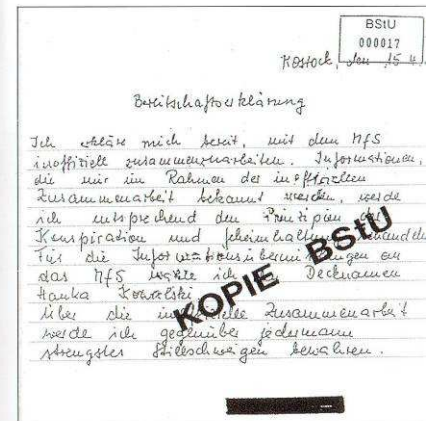 BStU
000017
Rostock, den 15.4.
Bereitschaftserklärung
Ich erkläre mich bereit, mit dem MfS
inoffiziell zusammenzuarbeiten. Informationen,
die mir im Rahmen der inoffiziellen
Zusammenarbeit bekannt werden, werde
ich entsprechend den Prinzipien der
Konspiration und Geheimhaltung
Für die Informationsübermittlungen an
das MfS wähle ich den Decknamen
Hanka Kowalski
Über die inoffizielle Zusammenarbeit
werde ich gegenüber jedermann
strengstes Stillschweigen bewahren.
KOPIE BStU